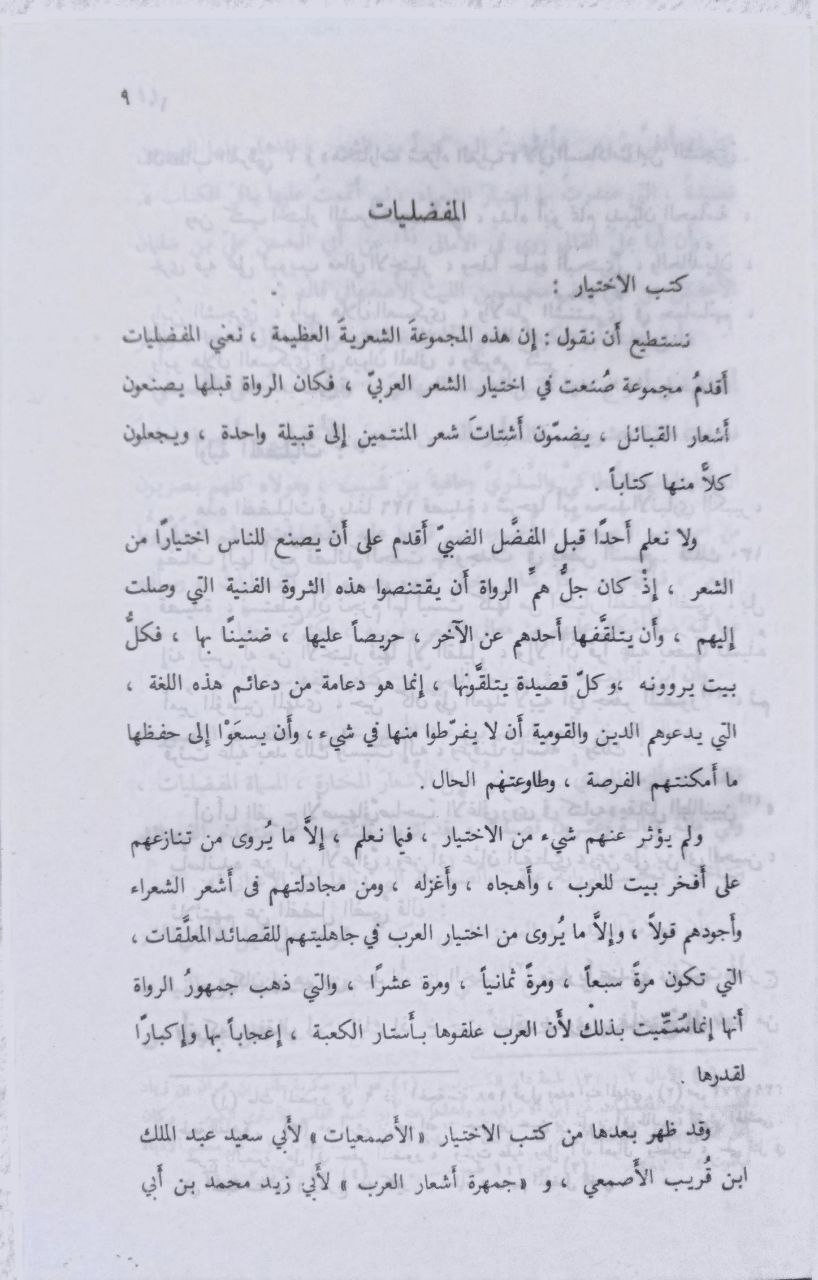 ٩
المفضليات
كتب الاختيار :
نستطيع أَن نقول : إِن هذه المجموعةَ الشعريةَ العظيمة ، نعني المفضليات
أَقدمُ مجموعة صُنعت في اختيار الشعر العربيّ ، فكان الرواة قبلها يصنعون
أَشعار القبائل ، يضمّون أَشتاتَ شعر المنتمين إلى قبيلة واحدة ، ويجعلون
كلاًّ منها كتاباً .
ولا نعلم أَحدًا قبل المفضَّل الضبيّ أَقدم على أَن يصنع للناس اختيارًا من
الشعر ، إِذْ كان جلُّ همِّ الرواة أَن يقتنصوا هذه الثروة الفنية التي وصلت
إِليهم ، وأَن يتلقَّفها أَحدهم عن الآخر ، حريصاً عليها ، ضنينًا بها ، فكلُّ
بيت يروونه ،وكلّ قصيدة يتلقَّونها ، إِنما هو دعامة من دعائم هذه اللغة ،
التي يدعوهم الدين والقومية أَن لا يفرّطوا منها في شيء ، وأَن يسعَوْا إلى حفظها
ما أَمكنتهم الفرصة ، وطاوعتهم الحال .
ولم يؤثر عنهم شيء من الاختيار ، فيما نعلم ، إِلاَّ ما يُروى من تنازعهم
على أَفخر بيت للعرب ، وأَهجاه ، وأَغزله ، ومن مجادلتهم فى أَشعر الشعراء
وأَجودهم قولاً ، وإِلاَّ ما يُروى من اختيار العرب في جاهليتهم للقصائد المعلَّقات ،
التي تكون مرةً سبعاً ، ومرةً ثمانياً ، ومرة عشرًا ، والتي ذهب جمهورُ الرواة
أَنها إِنما سُمِّيت بذلك لأَن العرب علقوها بأَستار الكعبة ، إِعجاباً بها وإِكبارًا
لقدرها .
وقد ظهر بعدها من كتب الاختيار «الأَصمعيات» لأَبي سعيد عبد الملك
ابن قُريب الأَصمعي ، و «جمهرة أَشعار العرب » لأَبي زيد محمد بن أَبي